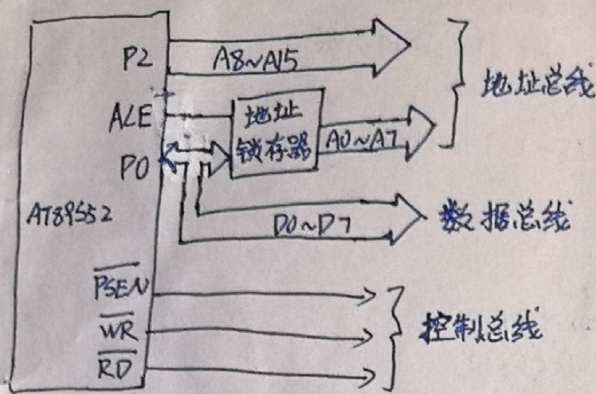 P2
A8~A15
地址总线
ALE
地址
锁存器
A0~A7
P0
AT89S52
D0~D7
数据总线
PSEN
WR
控制总线
RD